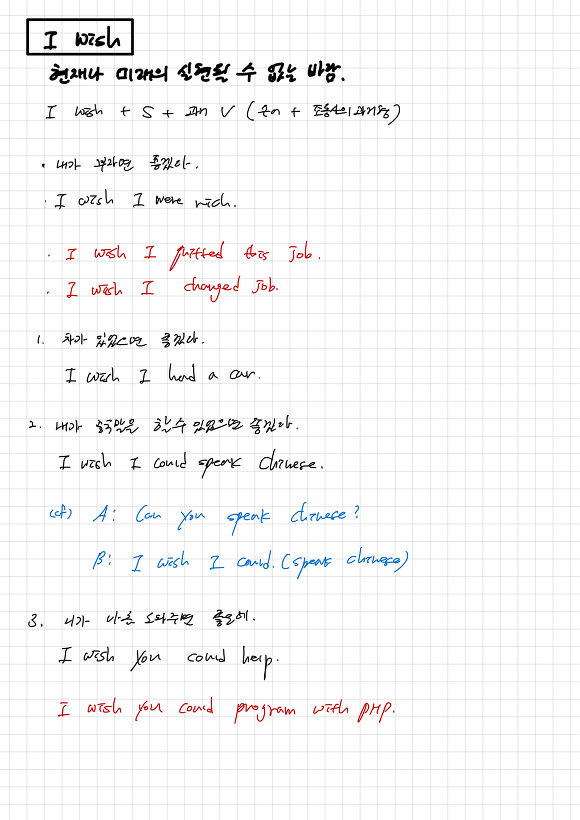 I wish
현재나 미래의 실현될 수 없는 바람.
I wish + S + 과거 V ( 조동사의 과거형)
· 내가 부자면 좋겠다.
· I wish I were rich.
· I wish I quitted this job.
· I wish I changed job.
1. 차가 있었으면 좋겠다.
I wish I had a car.
2. 내가 중국말을 할 수 있었으면 좋겠다.
I wish I could speak chinese.
(cf) A: Can you speak chinese?
B: I wish I could. (speak chinese)
3. 니가 나를 도와주면 좋을텐데.
I wish you could help.
I wish you could program with PHP.